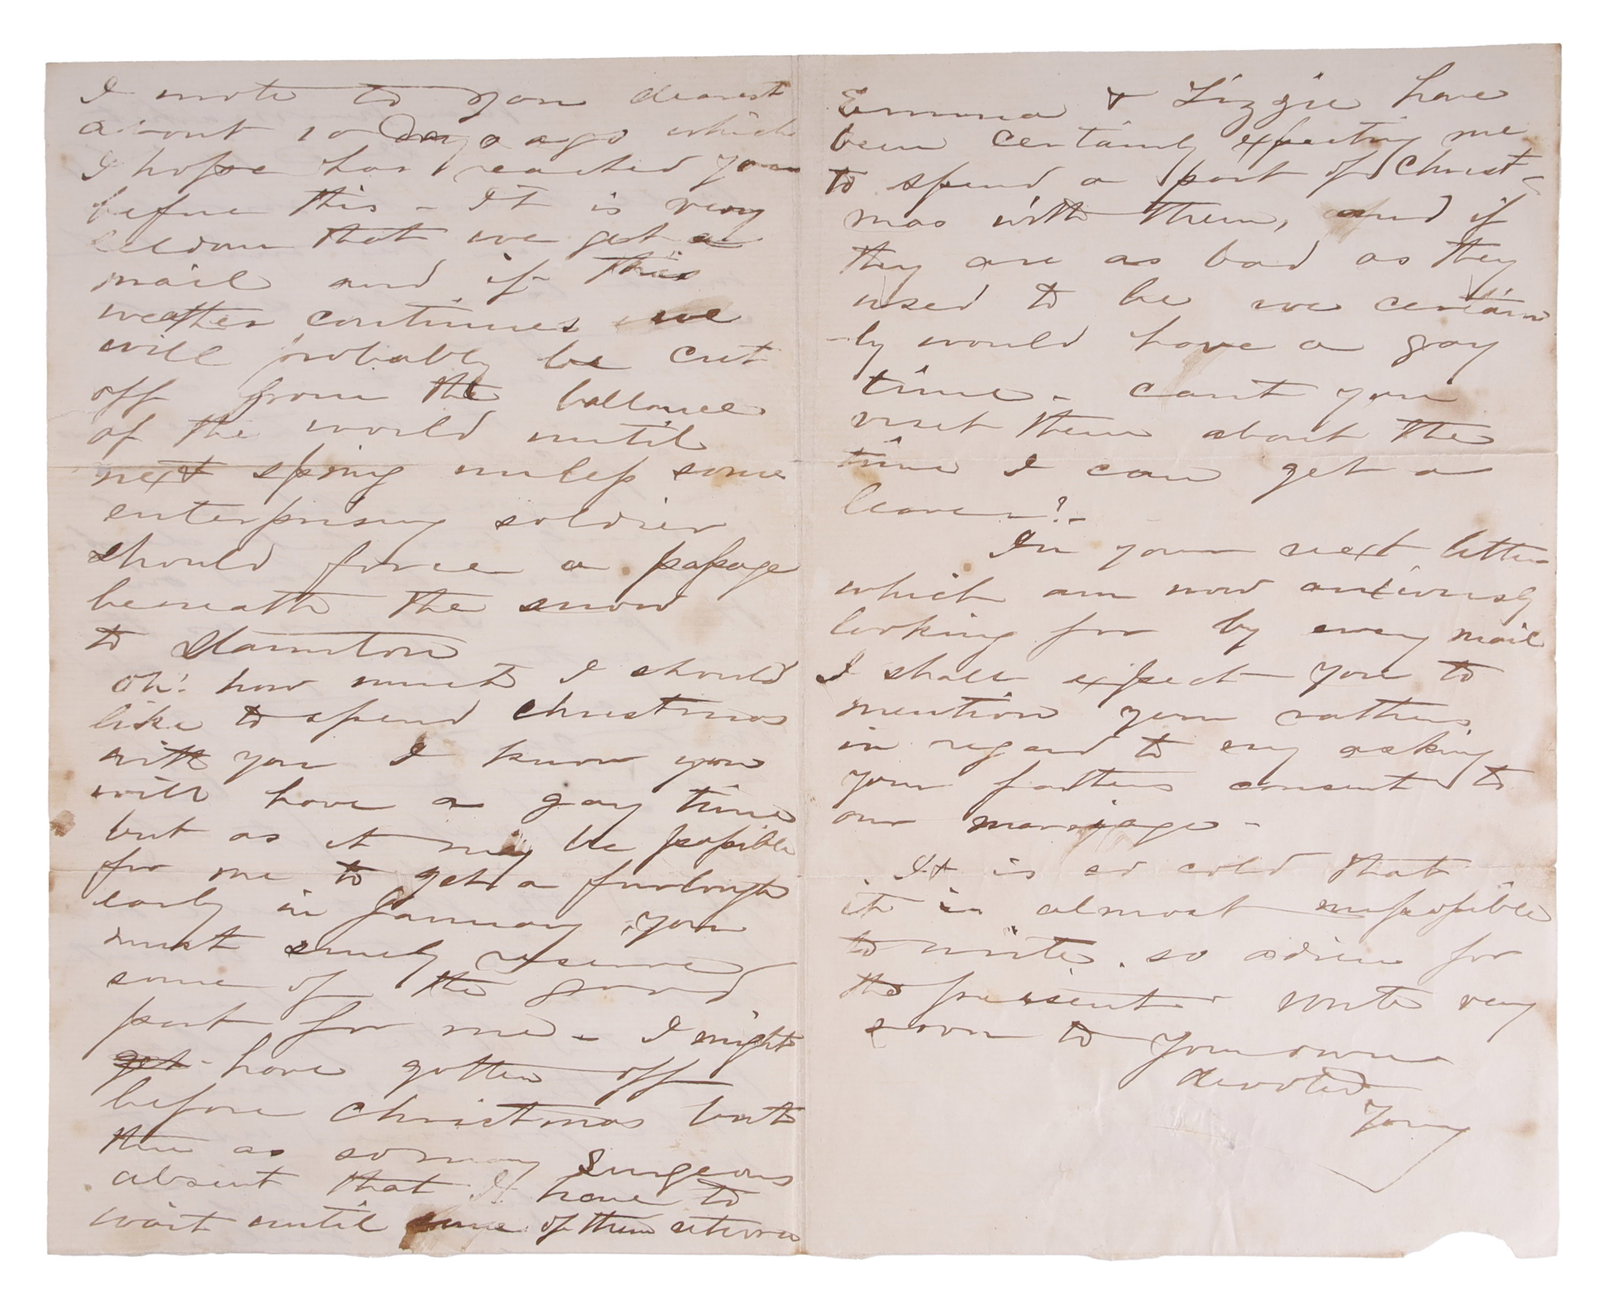 I wrote to you dearest
about 10 Days ago which
I hope has reached you
before this - It is very
seldom that we get a
mail and if this
weather continues we
will probably be cut
off from the ballance
of the world until
next spring unless some
enterprising soldier
should force a passage
beneath the snow
to Staunton
oh! how much I should
like to spend christmas
with you I know you
will have a gay time
but as it may be possible
for me to get a furlough
early in January, you
must surely reserve
some of the good
part for me - I might
get - have gotten off
before christmas but
there as so many Surgeons
absent that I have to
wait until some of them return
Emma & Lizzie have
been certainly expecting me
to spend a part of Christ-
mas with them, and if
they are as bad as they
used to be we certain
-ly would have a gay
time - cant you
visit them about the
time I can get a
leave?-
In your next letter
which am now anxiously
looking for by every mail
I shall expect you to
mention your
in regard to my asking
your fathers consent to
our marriage -
It is so cold that
it is almost impossible
to write. so adieu for
the present write very
soon to your own
devoted